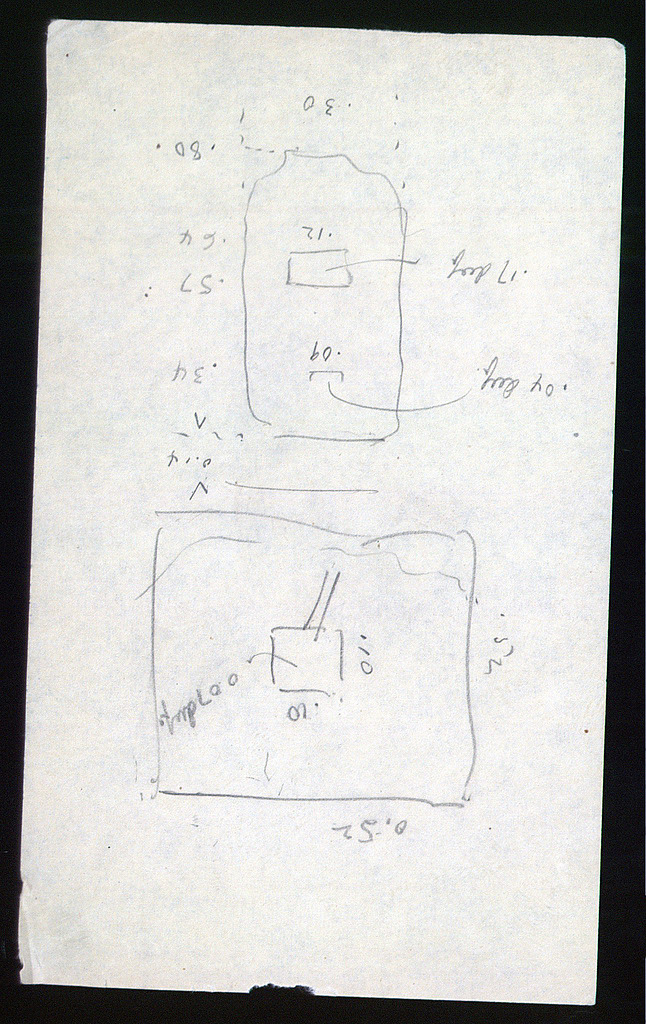 0.52
.10
0.07 deep
.10
.52
0.14
.04 deep
.34
.09
.17 deep
.57
.12
.64
.80
.30